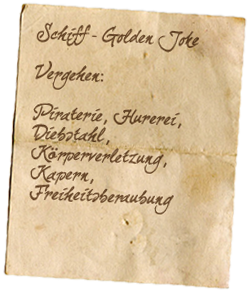 Schiff - Golden Joke
Vergehen:
Piraterie, Hurerei,
Diebstahl,
Körperverletzung,
Kapern,
Freiheitsberaubung